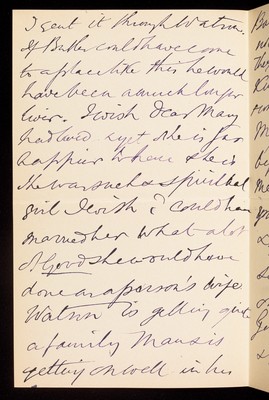 I sent it through Watson.
If Butler could have come
to a place like this he would
have been a much longer
liver. I wish dear Mary
had lived & yet she is far
happier where she is
She was such a spiritual
girl I wish I could have
married her what a lot
of Good she would have
done as a parson's wife
Watson is getting quite
a family Man & is
getting on well in his